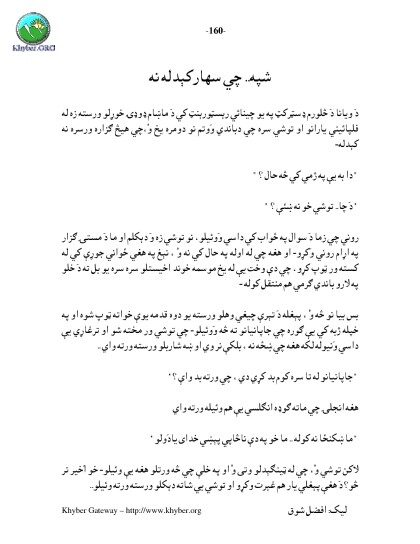 -160-
Khyber.ORG
شپه.. چي سهار کېدله نه
دَ ويانا دَ څلورم ډسټرکټ په يو چينائي ريسټورېنټ کي دَ ماښام ډوډۍ خوړلو ورسته زه له
فلپائيني يارانو او توشي سره چي دباندي وَوتم نو دومره يخ وُ،چي هيڅ ګزاره ورسره نه
کېدله-
"دا به يې په ژمي کي څه حال؟"
"دَ چا.. توشي خو نه ښئې؟"
رونې چي زما دَ سوال په ځواب کي داسي وَوئيلو، نو توشي زه وَ دېکلم او ما دَ مستۍ ګزار
په اړام رونې وکړو- او هغه چي له اوله په حال کي نه وُ، نېغ په هغې ځوانې جوړې کي له
کسته ور ټوپ کړو، چي دې وخت يې له يخ موسمه خوند اخيستلو سره سره يو بل ته دَ خلو
په لارو باندي ګرمي هم منتقل کوله-
بس بيا نو څه وُ، پېغله دَ تېرې چيغې وهلو ورسته يو دوه قدمه يوې خواته ټوپ شوه او په
خپله ژبه کي يې ګوره چي جاپانيانو ته څه وَوئيلو- چي توشي ور مخته شو او ترغاړي يې
داسي وَنيوله لکه هغه چي ښځه نه، بلکې نر وي او ښه شاريلو ورسته ورته واي..
"جاپانيانو له تا سره کوم بد کړي دي، چي ورته بد واې؟"
هغه انجلۍ چي ماته ګوډه انګلسي يې هم وئيله ورته واي
"ما ښکنځا نه کوله.. ما خو په دې ناڅاپي پېښي خداى يادَولو"
لاکن توشي وُ، چي له ټينګېدلو وتى وُ او په خلې چي څه ورتلو هغه يې وئيلو- خو آخير تر
څو؟ دَ هغې پېغلي يار هم غېرت وکړو او توشي يې شاته دېکلو ورسته ورته وئيلو..
Khyber Gateway – http://www.khyber.org
ليک: افضل شوق